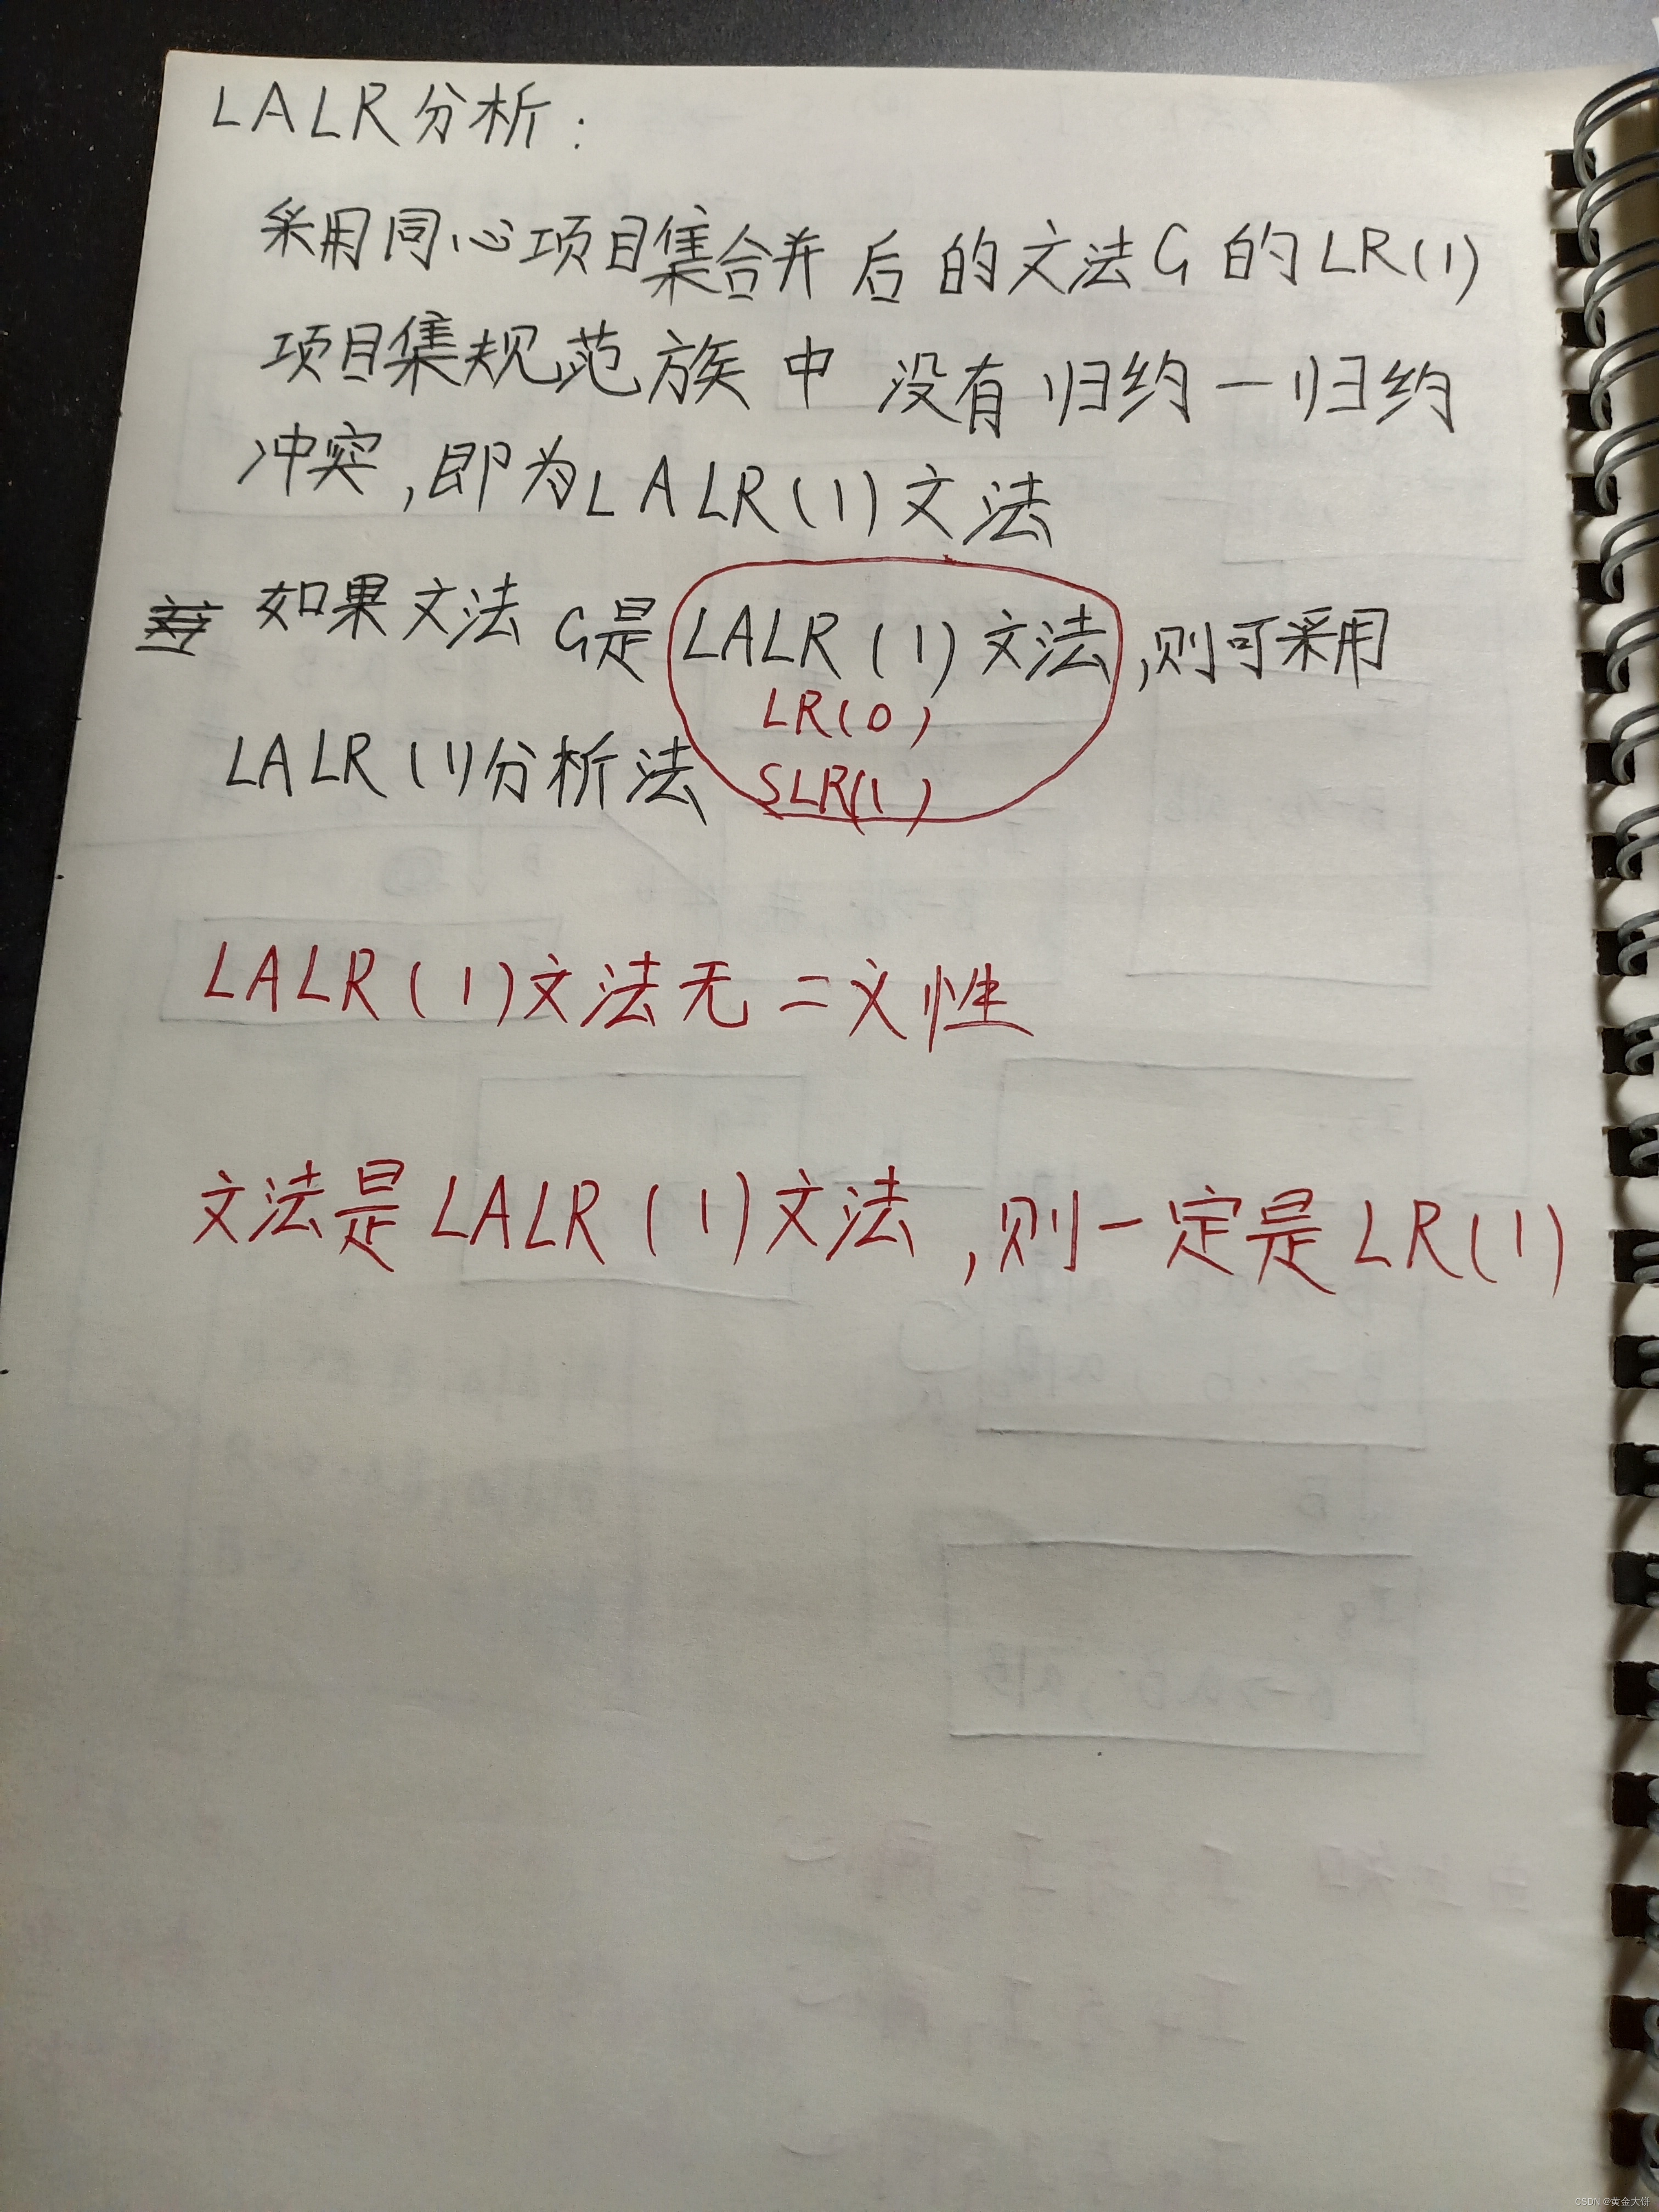 LALR分析：
采用同心项目集合并后的文法G的LR(1)
项目集规范族中没有归约—归约
冲突,即为LALR(1)文法
如果文法G是LALR(1)文法,则可采用
LR(0)
LALR(1)分析法
SLR(1)
LALR(1)文法无二义性
文法是LALR(1)文法,则一定是LR(1)
CSDN @黄金大饼